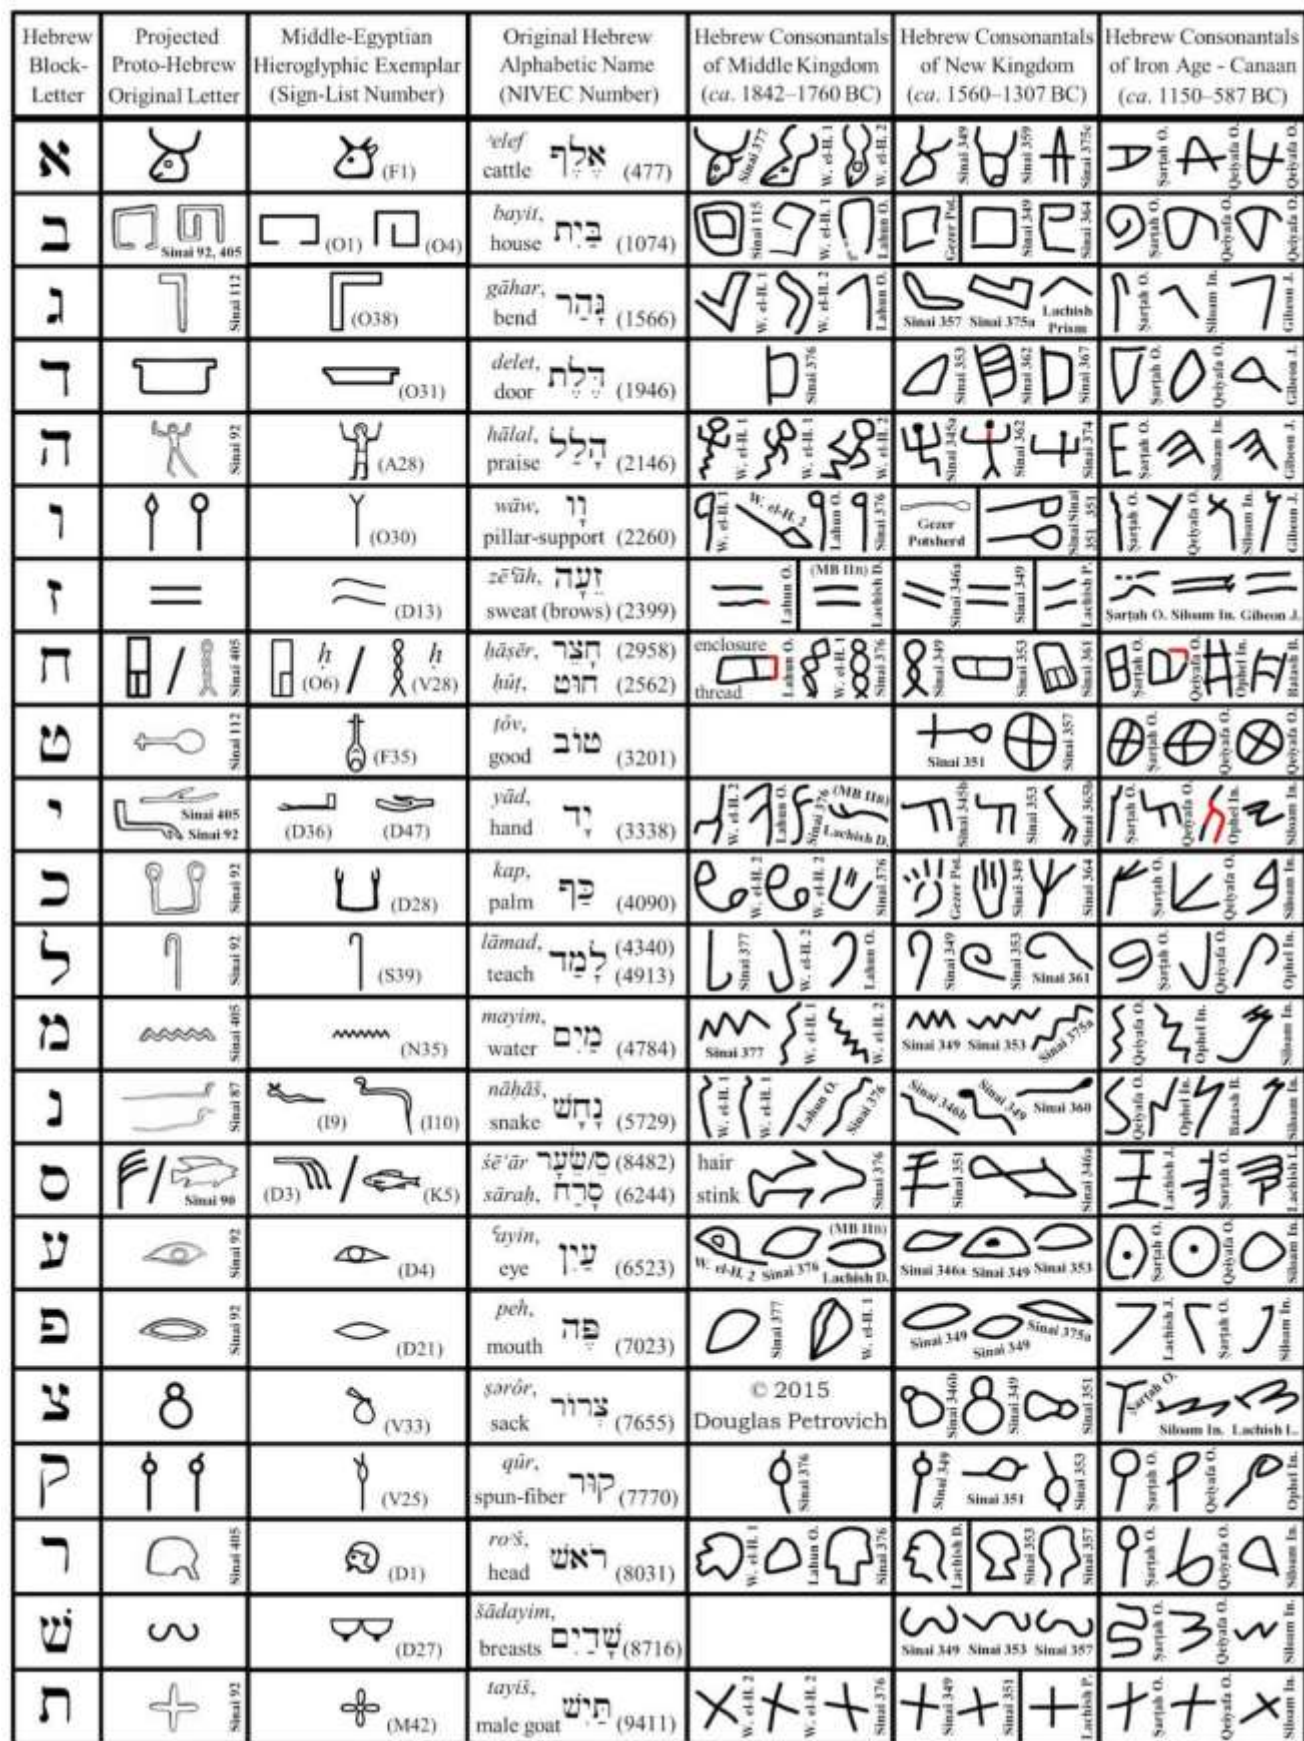 Hebrew Block-Letter
Projected Proto-Hebrew Original Letter
Middle-Egyptian Hieroglyphic Exemplar (Sign-List Number)
Original Hebrew Alphabetic Name (NIVEC Number)
Hebrew Consonantals of Middle Kingdom (ca. 1842–1760 BC)
Hebrew Consonantals of New Kingdom (ca. 1560–1307 BC)
Hebrew Consonantals of Iron Age - Canaan (ca. 1150–587 BC)
א (F1) ʾelef cattle אֶלֶף (477) Sinai 377 W. el-H. 1 W. el-H. 2 Sinai 349 Sinai 359 Sinai 375c Ṣarṭah O. Qeiyafa O. Qeiyafa O.
ב Sinai 92, 405 (O1) (O4) bayit, house בַּיִת (1074) Sinai 115 W. el-H. 1 Lahun O. Gezer Pot. Sinai 349 Sinai 364 Ṣarṭah O. Qeiyafa O. Qeiyafa O.
ג Sinai 112 (O38) gāhar, bend גָּהַר (1566) W. el-H. 1 W. el-H. 2 Lahun O. Sinai 357 Sinai 375a Lachish Prism Ṣarṭah O. Siloam In. Gibeon J.
ד (O31) delet, door דֶּלֶת (1946) Sinai 376 Sinai 353 Sinai 362 Sinai 367 Ṣarṭah O. Qeiyafa O. Gibeon J.
ה Sinai 92 (A28) hālal, praise הָלַל (2146) W. el-H. 1 W. el-H. 1 W. el-H. 2 Sinai 345a Sinai 362 Sinai 374 Ṣarṭah O. Siloam In. Gibeon J.
ו (O30) wāw, pillar-support וָו (2260) W. el-H. 1 W. el-H. 2 Lahun O. Sinai 376 Gezer Potsherd Sinai 351 Sinai 351 Ṣarṭah O. Qeiyafa O. Siloam In. Gibeon J.
ז (D13) zēʿāh, sweat (brows) זֵעָה (2399) Lahun O. (MB IIB) Lachish D. Sinai 346a Sinai 349 Lachish P. Ṣarṭah O. Siloam In. Gibeon J.
ח Sinai 405 ḥ (O6) ḥ (V28) ḥāṣēr, חָצֵר (2958) ḥûṭ, חוּט (2562) enclosure thread Lahun O. W. el-H. 1 Sinai 376 Sinai 349 Sinai 353 Sinai 361 Ṣarṭah O. Qeiyafa O. Ophel In. Batash B.
ט Sinai 112 (F35) ṭôv, good טוֹב (3201) Sinai 351 Sinai 357 Ṣarṭah O. Qeiyafa O. Qeiyafa O.
י Sinai 405 Sinai 92 (D36) (D47) yād, hand יָד (3338) W. el-H. 2 Lahun O. Sinai 376 (MB IIB) Lachish D. Sinai 345b Sinai 353 Sinai 365b Ṣarṭah O. Qeiyafa O. Ophel In. Siloam In.
כ Sinai 92 (D28) kap, palm כַּף (4090) W. el-H. 2 W. el-H. 2 Sinai 376 Gezer Pot. Sinai 349 Sinai 364 Ṣarṭah O. Qeiyafa O. Siloam In.
ל Sinai 92 (S39) lāmad, teach לָמַד (4340) (4913) Sinai 377 W. el-H. 2 Lahun O. Sinai 349 Sinai 353 Sinai 361 Ṣarṭah O. Qeiyafa O. Ophel In.
מ Sinai 405 (N35) mayim, water מַיִם (4784) Sinai 377 W. el-H. 1 W. el-H. 2 Sinai 349 Sinai 353 Sinai 375a Qeiyafa O. Ophel In. Siloam In.
נ Sinai 87 (I9) (I10) nāḥāš, snake נָחָשׁ (5729) W. el-H. 1 W. el-H. 1 Lahun O. Sinai 376 Sinai 346b Sinai 349 Sinai 360 Qeiyafa O. Ophel In. Batash B. Siloam In.
ס Sinai 90 (D3) (K5) śēʿār ס/שֵׂעָר (8482) sāraḥ, סָרַח (6244) hair stink Sinai 376 Sinai 351 Sinai 346a Lachish J. Ṣarṭah O. Lachish L.
ע Sinai 92 (D4) ʿayin, eye עַיִן (6523) W. el-H. 2 Sinai 376 (MB IIB) Lachish D. Sinai 346a Sinai 349 Sinai 353 Ṣarṭah O. Qeiyafa O. Siloam In.
פ Sinai 92 (D21) peh, mouth פֶּה (7023) Sinai 377 W. el-H. 1 Sinai 349 Sinai 349 Sinai 375a Lachish J. Ṣarṭah O. Siloam In.
צ (V33) ṣərôr, sack צְרוֹר (7655) © 2015 Douglas Petrovich Sinai 346b Sinai 349 Sinai 351 Ṣarṭah O. Siloam In. Lachish L.
ק (V25) qûr, spun-fiber קוּר (7770) Sinai 376 Sinai 349 Sinai 351 Sinai 353 Ṣarṭah O. Qeiyafa O. Ophel In.
ר Sinai 405 (D1) roʾš, head רֹאשׁ (8031) W. el-H. 1 Lahun O. Sinai 376 Lachish D. Sinai 353 Sinai 357 Ṣarṭah O. Qeiyafa O. Siloam In.
שׁ (D27) šādayim, breasts שָׁדַיִם (8716) Sinai 349 Sinai 353 Sinai 357 Ṣarṭah O. Qeiyafa O. Siloam In.
ת Sinai 92 (M42) tayiš, male goat תַּיִשׁ (9411) W. el-H. 2 W. el-H. 2 Sinai 376 Sinai 349 Sinai 351 Lachish P. Ṣarṭah O. Qeiyafa O. Siloam In.